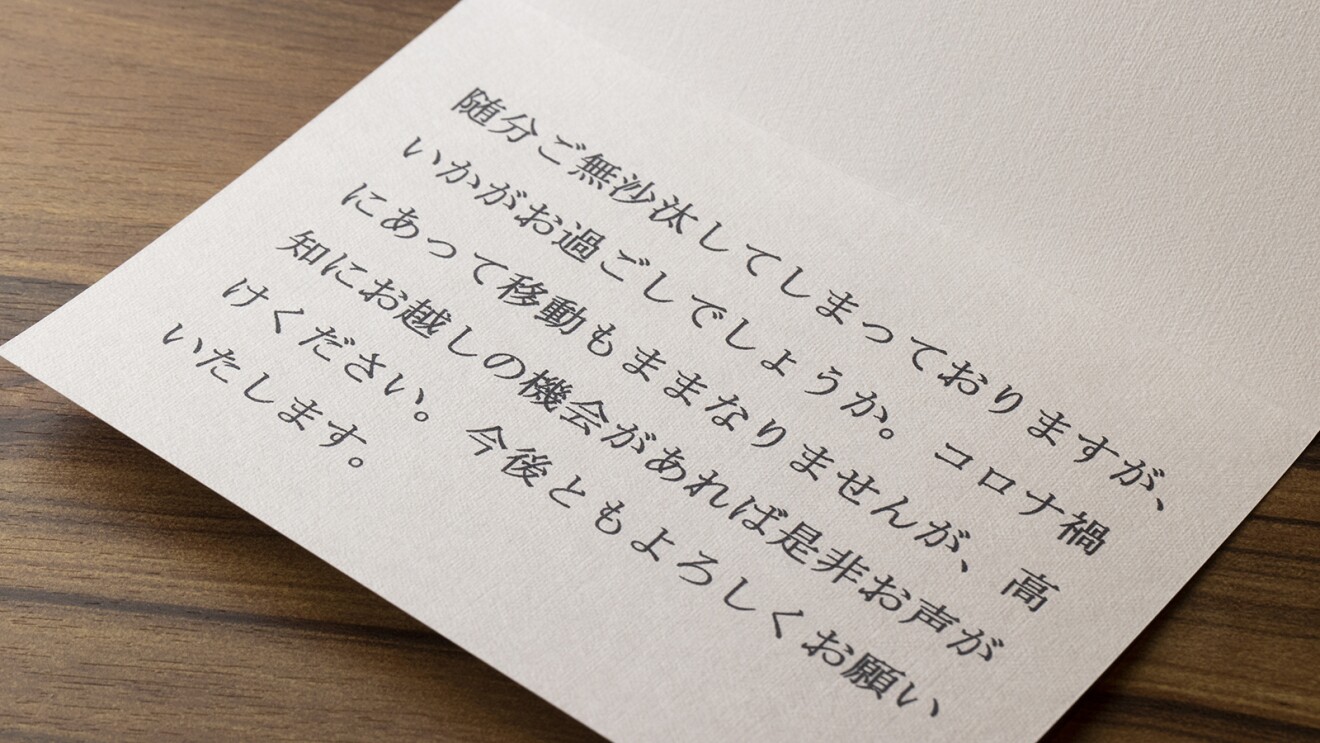 随分ご無沙汰してしまっておりますが、
いかがお過ごしでしょうか。コロナ禍
にあって移動もままなりませんが、高
知にお越しの機会があれば是非お声が
けください。今後ともよろしくお願い
いたします。